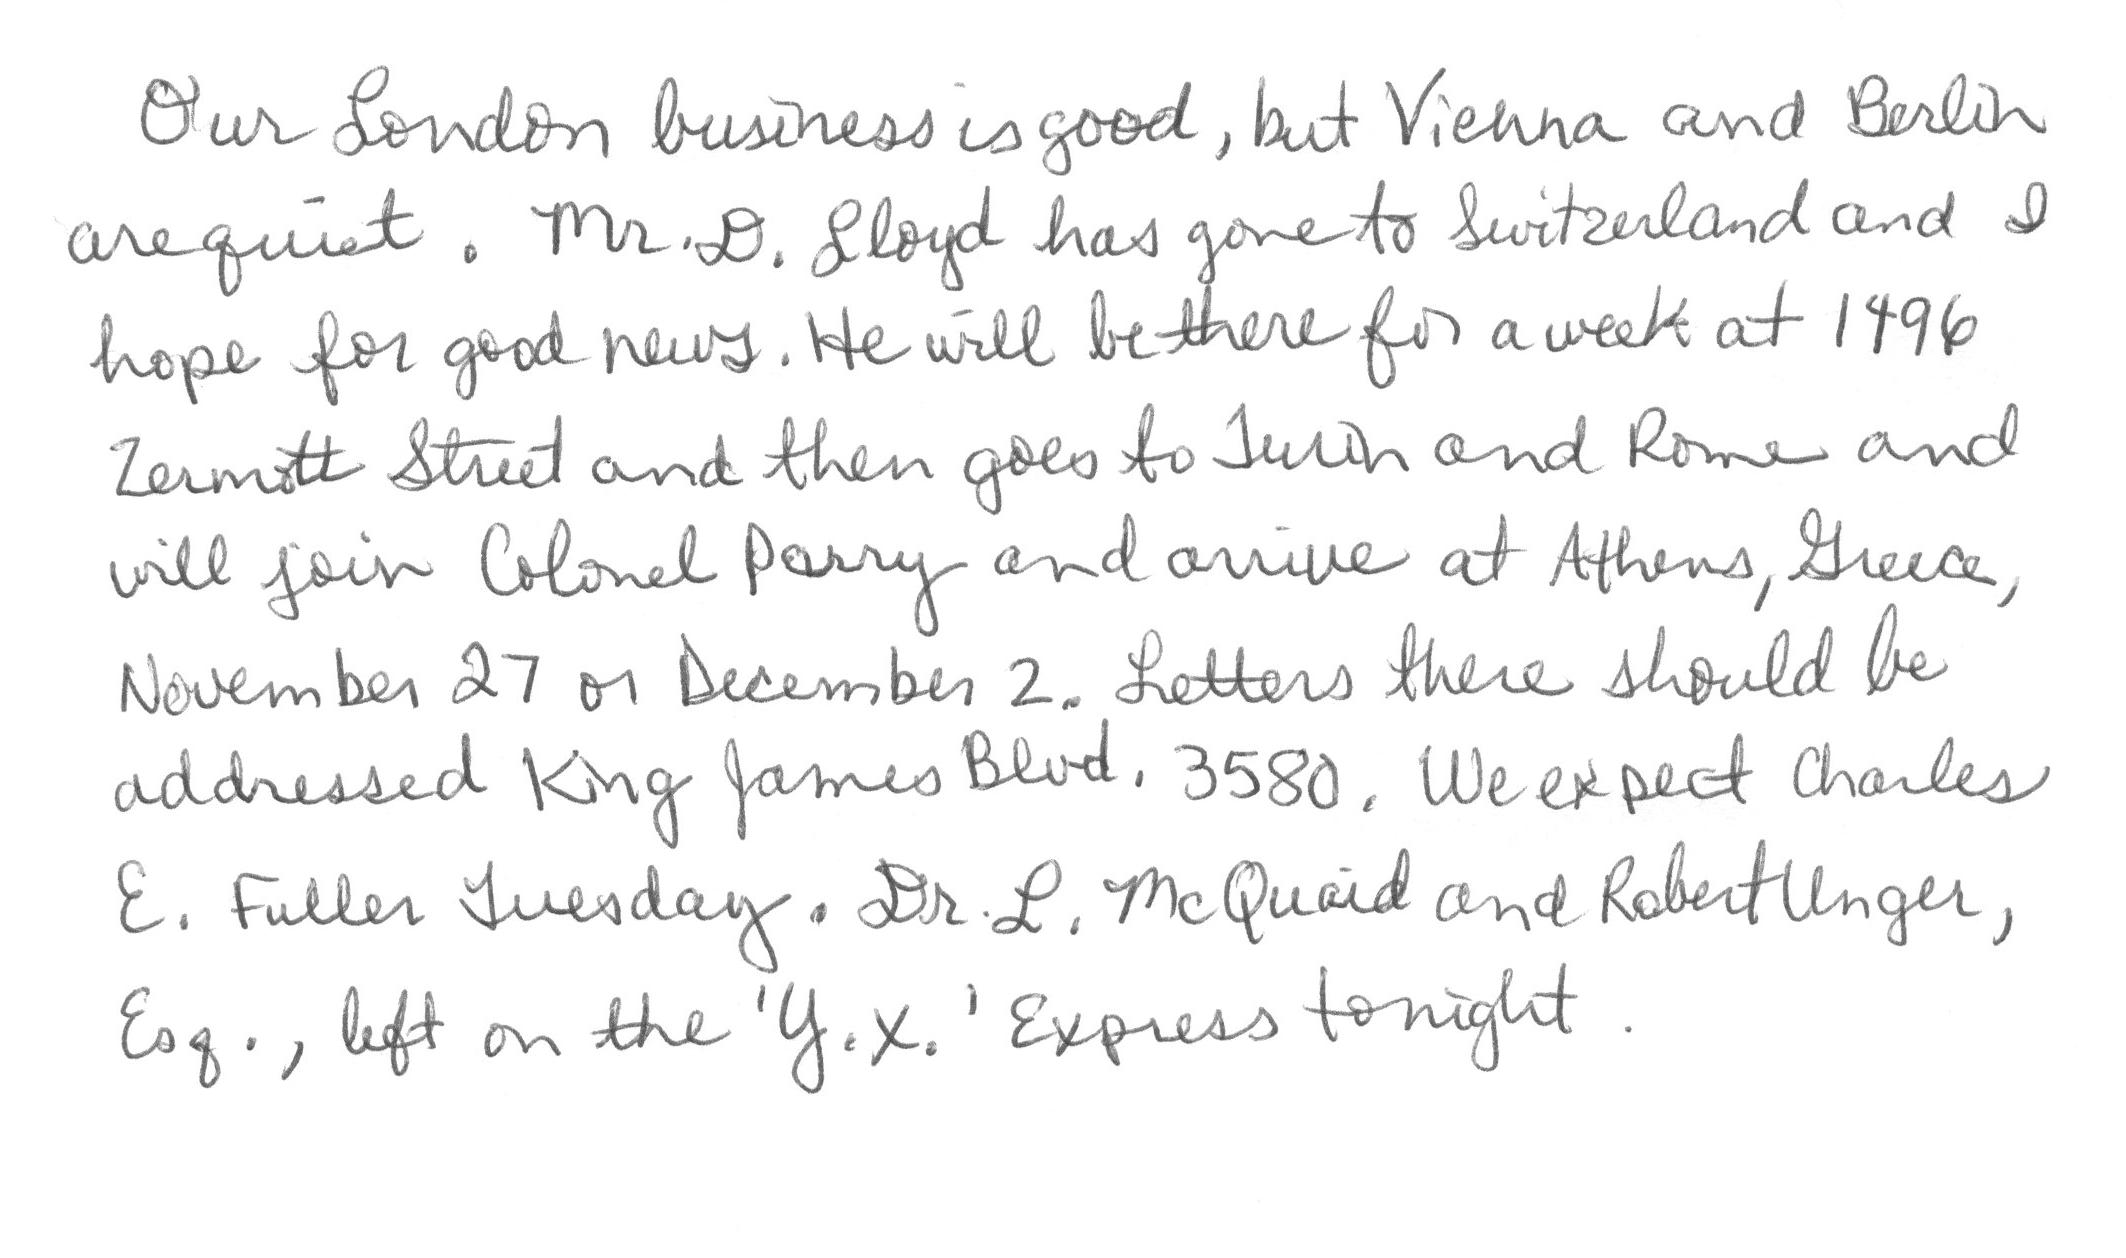 Our London business is good, but Vienna and Berlin
are quiet. Mr. D. Lloyd has gone to Switzerland and I
hope for good news. He will be there for a week at 1496
Zermott Street and then goes to Turin and Rome and
will join Colonel Parry and arrive at Athens, Greece,
November 27 or December 2. Letters there should be
addressed King James Blvd. 3580. We expect Charles
E. Fuller Tuesday. Dr. L. McQuaid and Robert Unger,
Esq., left on the 'Y.X.' Express tonight.